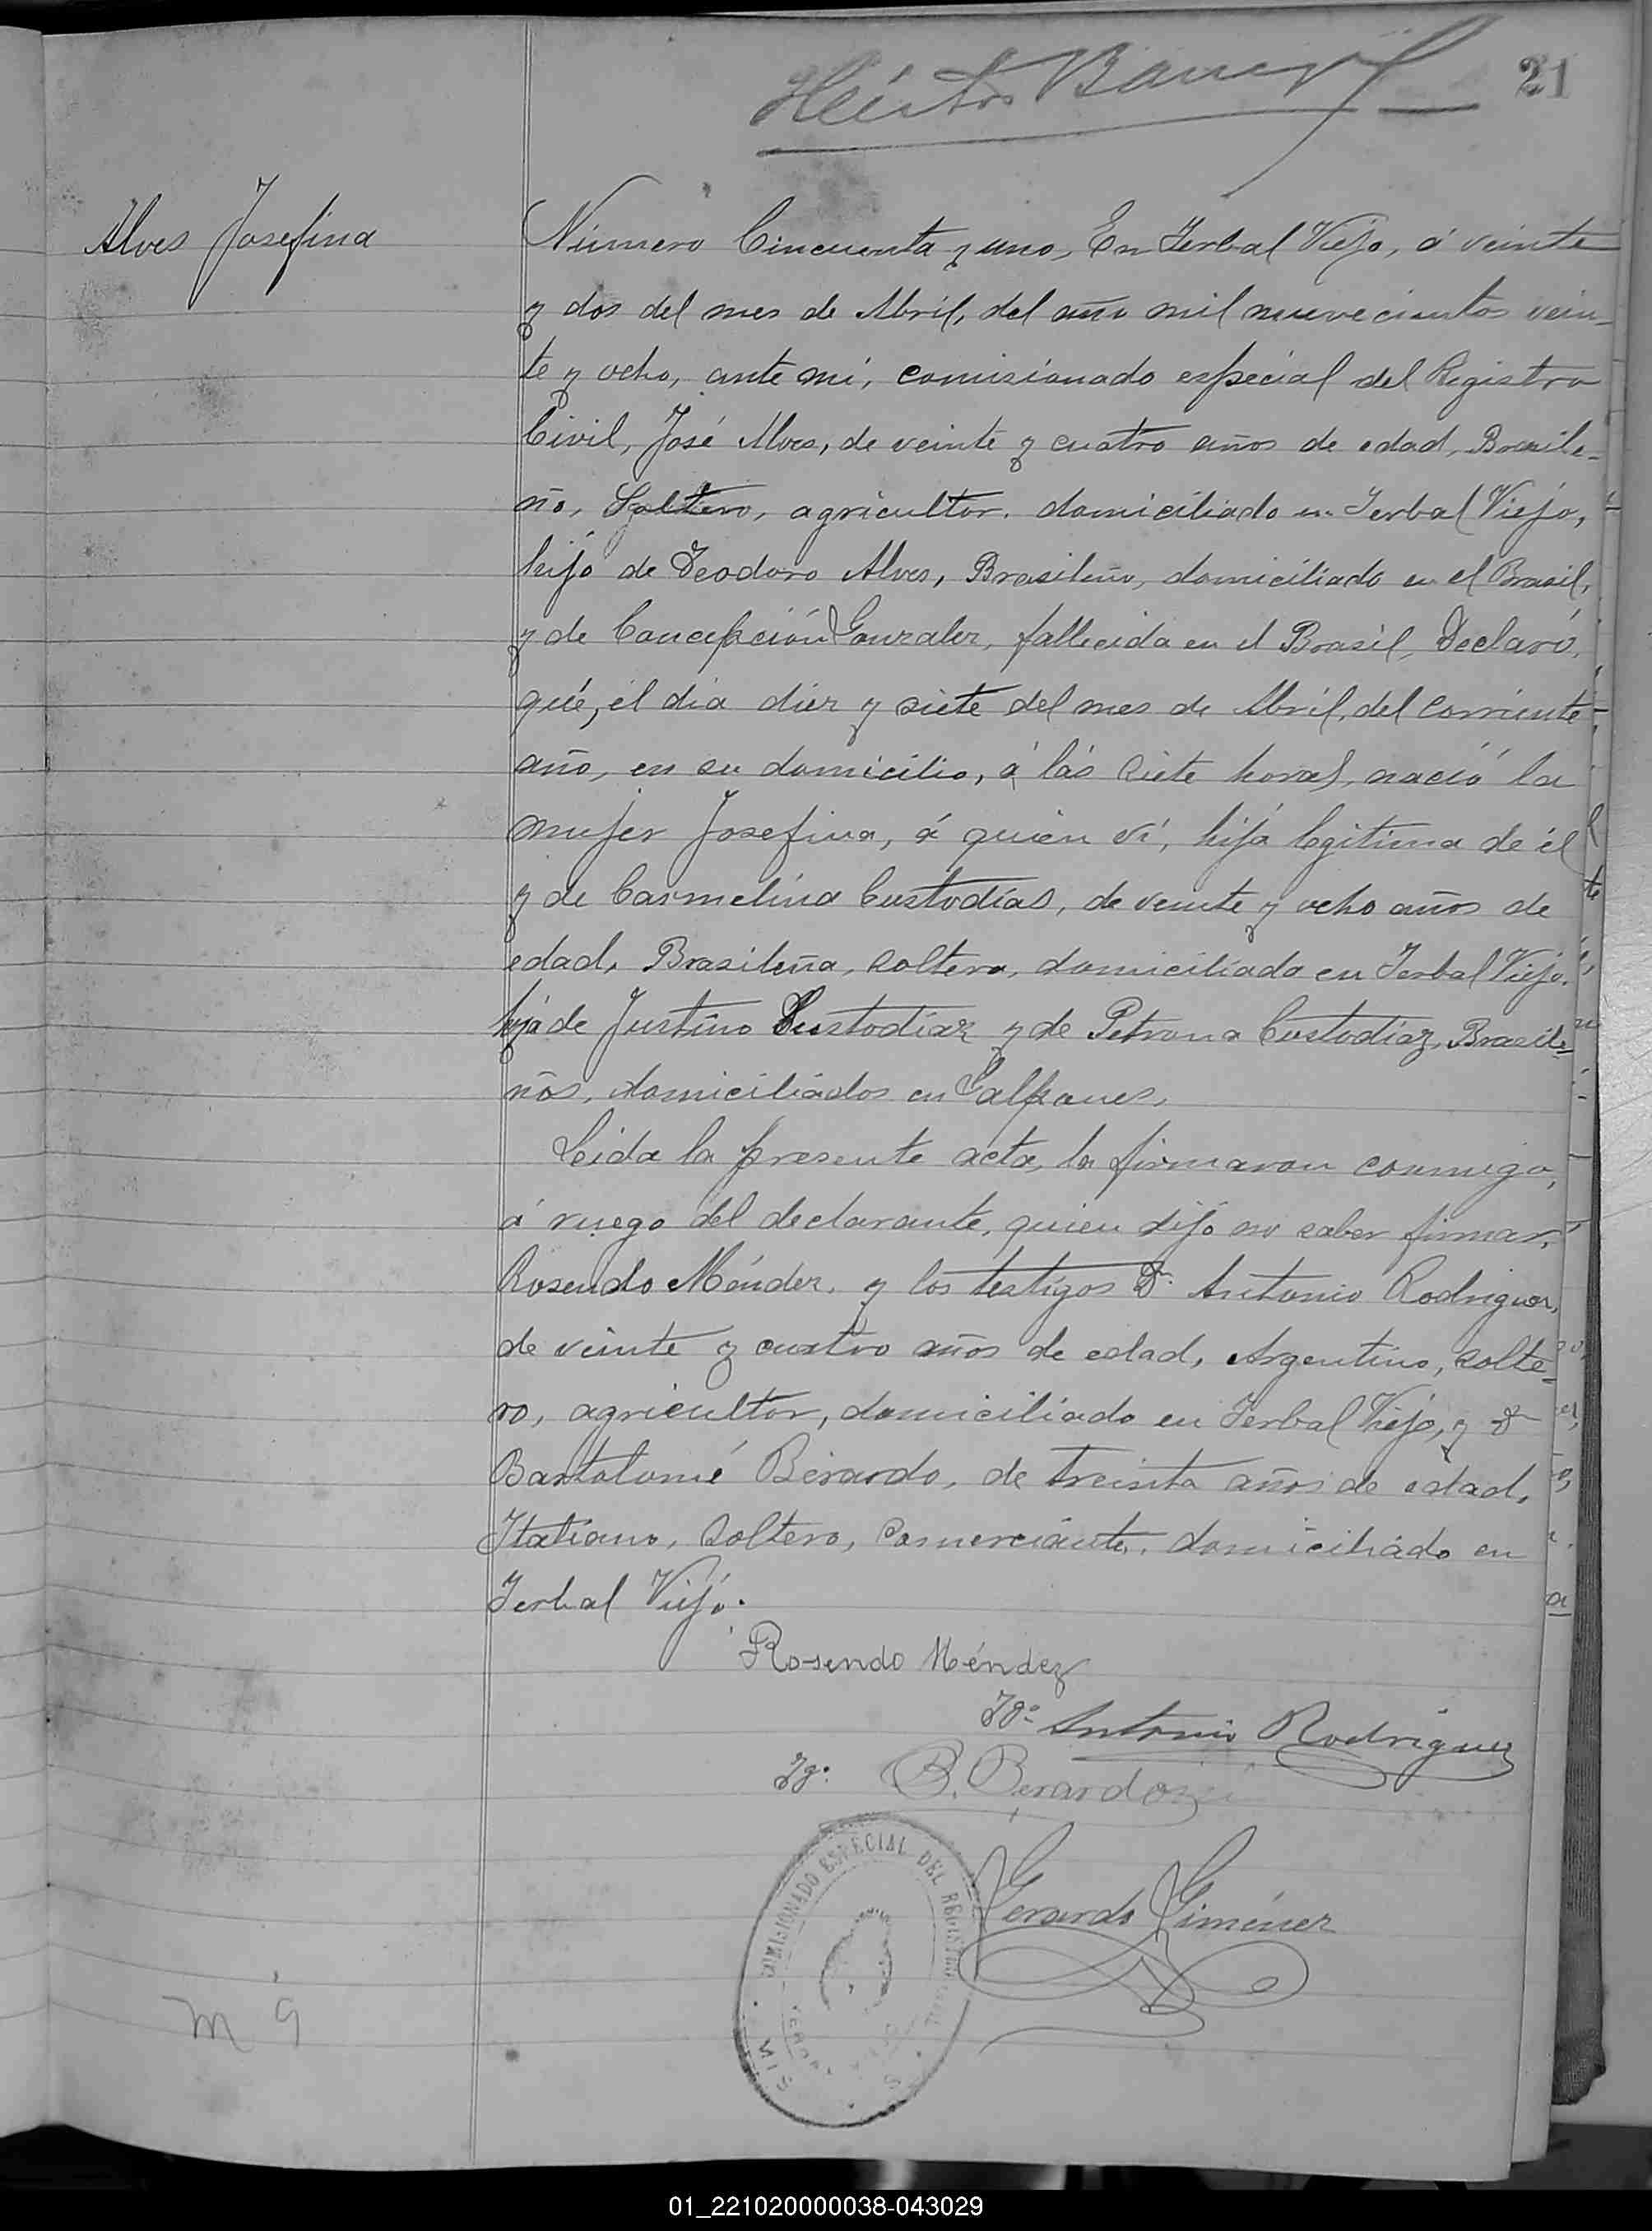 21
Héctor
Alves Josefina
Número Cincuenta y uno, En Yerbal Viejo, á veinte
y dos del mes de Abril, del año mil nuevecientos vein-
te y ocho, ante mí, comisionado especial del Registro
Civil, José Alves, de veinte y cuatro años de edad, Brasile-
ño, Soltero, agricultor, domiciliado en Yerbal Viejo,
hijo de Teodoro Alves, Brasileño, domiciliado en el Brasil,
y de Concepción Gonzalez, fallecida en el Brasil, Declaró,
qué, el día diez y siete del mes de Abril, del corriente
año, en su domicilio, á las siete horas, nació la
mujer Josefina, á quien ví, hija legitima de él
y de Carmelina Custodias, de veinte y ocho años de
edad, Brasileña, soltera, domiciliada en Yerbal Viejo,
hija de Justino Custodiaz y de Petrona Custodiaz, Brasile-
ños, domiciliados en Galpones,
Leida la presente acta, la firmaron conmigo,
á ruego del declarante, quien dijo no saber firmar,
Rosendo Méndez, y los testigos Dn. Antonio Rodriguez,
de veinte y cuatro años de edad, Argentino, solte-
ro, agricultor, domiciliado en Yerbal Viejo, y Dn
Bartolomé Bérardo, de treinta años de edad,
Italiano, soltero, Comerciante, domiciliado en
Yerbal Viejo.
Rosendo Méndez
Tgo. Antonio Rodriguez
Tgo. B. Berardo
COMISIONADO ESPECIAL DEL REGISTRO CIVIL
Gerardo Giménez
m 9
01_221020000038-043029